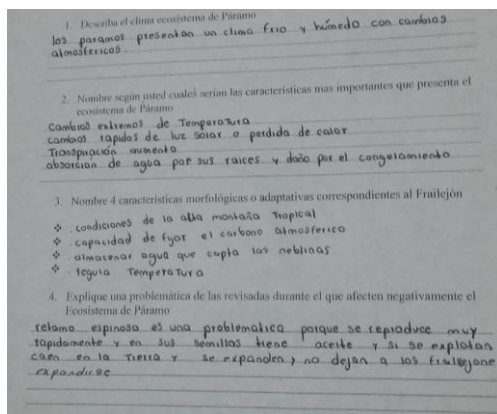 1. Describa el clima ecosistema de Páramo
los paramos presentan un clima frio y húmedo con cambios
atmosfericos.
2. Nombre según usted cuales serian las características mas importantes que presenta el
ecosistema de Páramo
Cambios extremos de Temperatura
cambios rapidos de luz solar o perdida de calor
Transpiración aumento
absorcion de agua por sus raices y daño por el congelamiento
3. Nombre 4 características morfológicas o adaptativas correspondientes al Frailejón
❖ condiciones de la alta montaña Tropical
❖ capacidad de fijar el carbono atmosferico
❖ almacenar agua que capta las neblinas
❖ regula Temperatura
4. Explique una problemática de las revisadas durante el que afecten negativamente el
Ecosistema de Páramo
retamo espinoso es una problematica porque se reproduce muy
rapidamente y en sus semillas tiene aceite y si se explotan
caen en la Tierra y se expanden y no dejan a los
expandirse